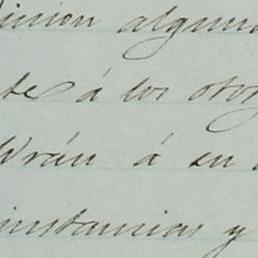 inion alguna
te á los otor
drán á su
instancias y